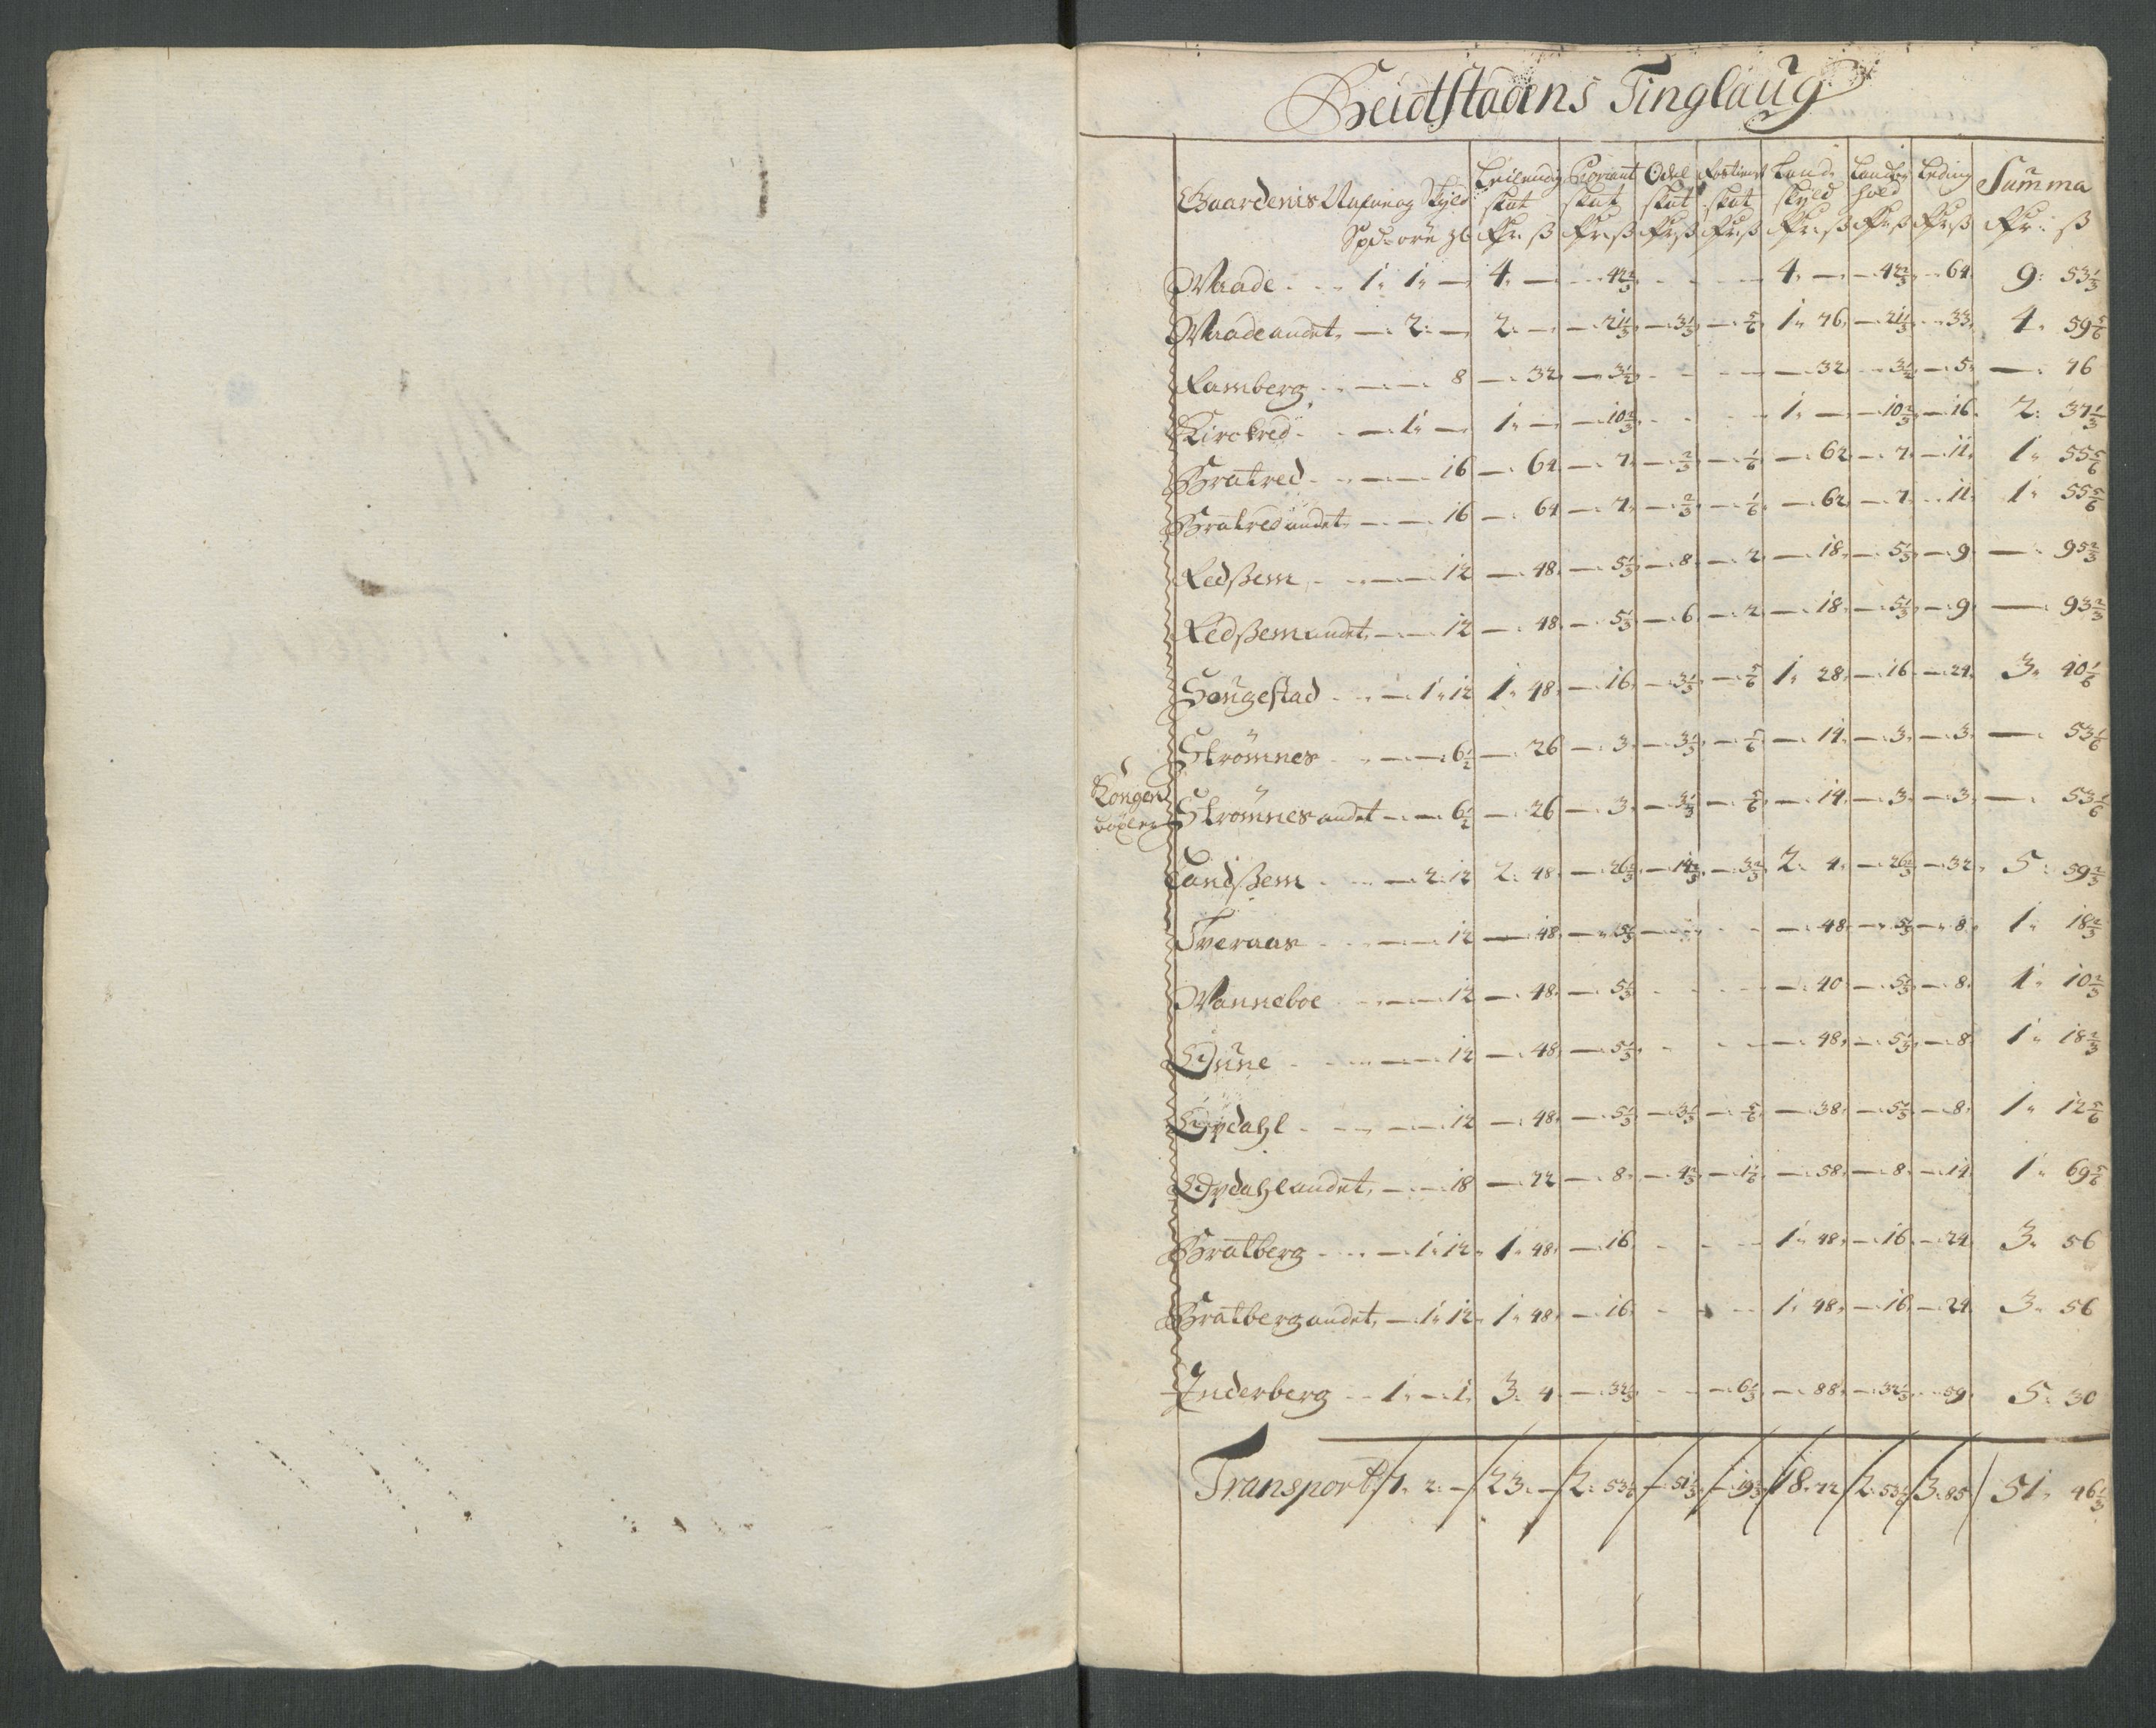 Beidtstadens Tinglaug
Gaardenis Nafne og Skyld Leilending skat Proviant skat Odel skat Rostieneste skat Land skyld Landts hold Leding Summa
Spd: øre Rdr: ß Rdr: ß Rdr: ß Rdr: ß Rdr: ß Rdr: ß Rdr: ß Rdr: ß
Waade 1. 1. — 4. — — 42 2/3 4. — — 42 2/3 — 64 9: 53 1/3
Waade andet — 2. — 2. — — 21 1/3 — 3 1/3 — 5/6 1. 76 — 21 1/3 — 33 4. 59 5/6
Ramberg — — 8 — 32 — 3 1/2 — 32 — 3 1/2 — 5 — 76
Kirckred — 1. — 1. — — 10 2/3 1. — — 10 2/3 — 16 2: 37 1/3
Bratred — — 16 — 64 — 7 — 2/3 — 1/6 — 62 — 7 — 11 1. 55 5/6
Bratred andet — — 16 — 64 — 7 — 2/3 — 1/6 — 62 — 7 — 11 1. 55 5/6
Redßem — — 12 — 48 — 5 1/3 — 8 — 2 — 18 — 5 1/3 — 9 — 95 2/3
Redßem andet — — 12 — 48 — 5 1/3 — 6 — 2 — 18 — 5 1/3 — 9 — 93 2/3
Hougestad — 1. 12 1. 48 — 16 — 3 1/3 — 5/6 1. 28 — 16 — 24 3. 40 1/6
Strømnes — — 6 1/2 — 26 — 3 — 3 1/3 — 5/6 — 14 — 3 — 3 — 53 1/6
Kongen
bøxler
Strømnes andet — — 6 1/2 — 26 — 3 — 3 1/3 — 5/6 — 14 — 3 — 3 — 53 1/6
Tandßem — 2. 12 2. 48 — 26 2/3 — 14 2/3 — 3 2/3 2. 4 — 26 2/3 — 32 5: 59 2/3
Tveraas — — 12 — 48 — 5 1/3 — 48 — 5 1/3 — 8 1. 18 2/3
Wanneboe — — 12 — 48 — 5 1/3 — 40 — 5 1/3 — 8 1. 10 2/3
Dune — — 12 — 48 — 5 1/3 — 48 — 5 1/3 — 8 1. 18 2/3
Opdahl — — 12 — 48 — 5 1/3 — 3 1/3 — 5/6 — 38 — 5 1/3 — 8 1. 12 5/6
Opdahl andet — — 18 — 72 — 8 — 4 2/3 — 1 1/6 — 58 — 8 — 14 1. 69 5/6
Bratberg — 1. 12 1. 48 — 16 1. 48 — 16 — 24 3. 56
Bratberg andet — 1. 12 1. 48 — 16 1. 48 — 16 — 24 3. 56
Inderberg 1. — 1. 3. 4 — 32 1/3 — 6 1/3 — 88 — 32 1/3 — 59 5. 30
Transport 4. 2. — 23. — 2. 53 1/6 — 51 1/3 — 19 2/3 18. 72 2. 53 1/6 3. 85 51. 46 1/3